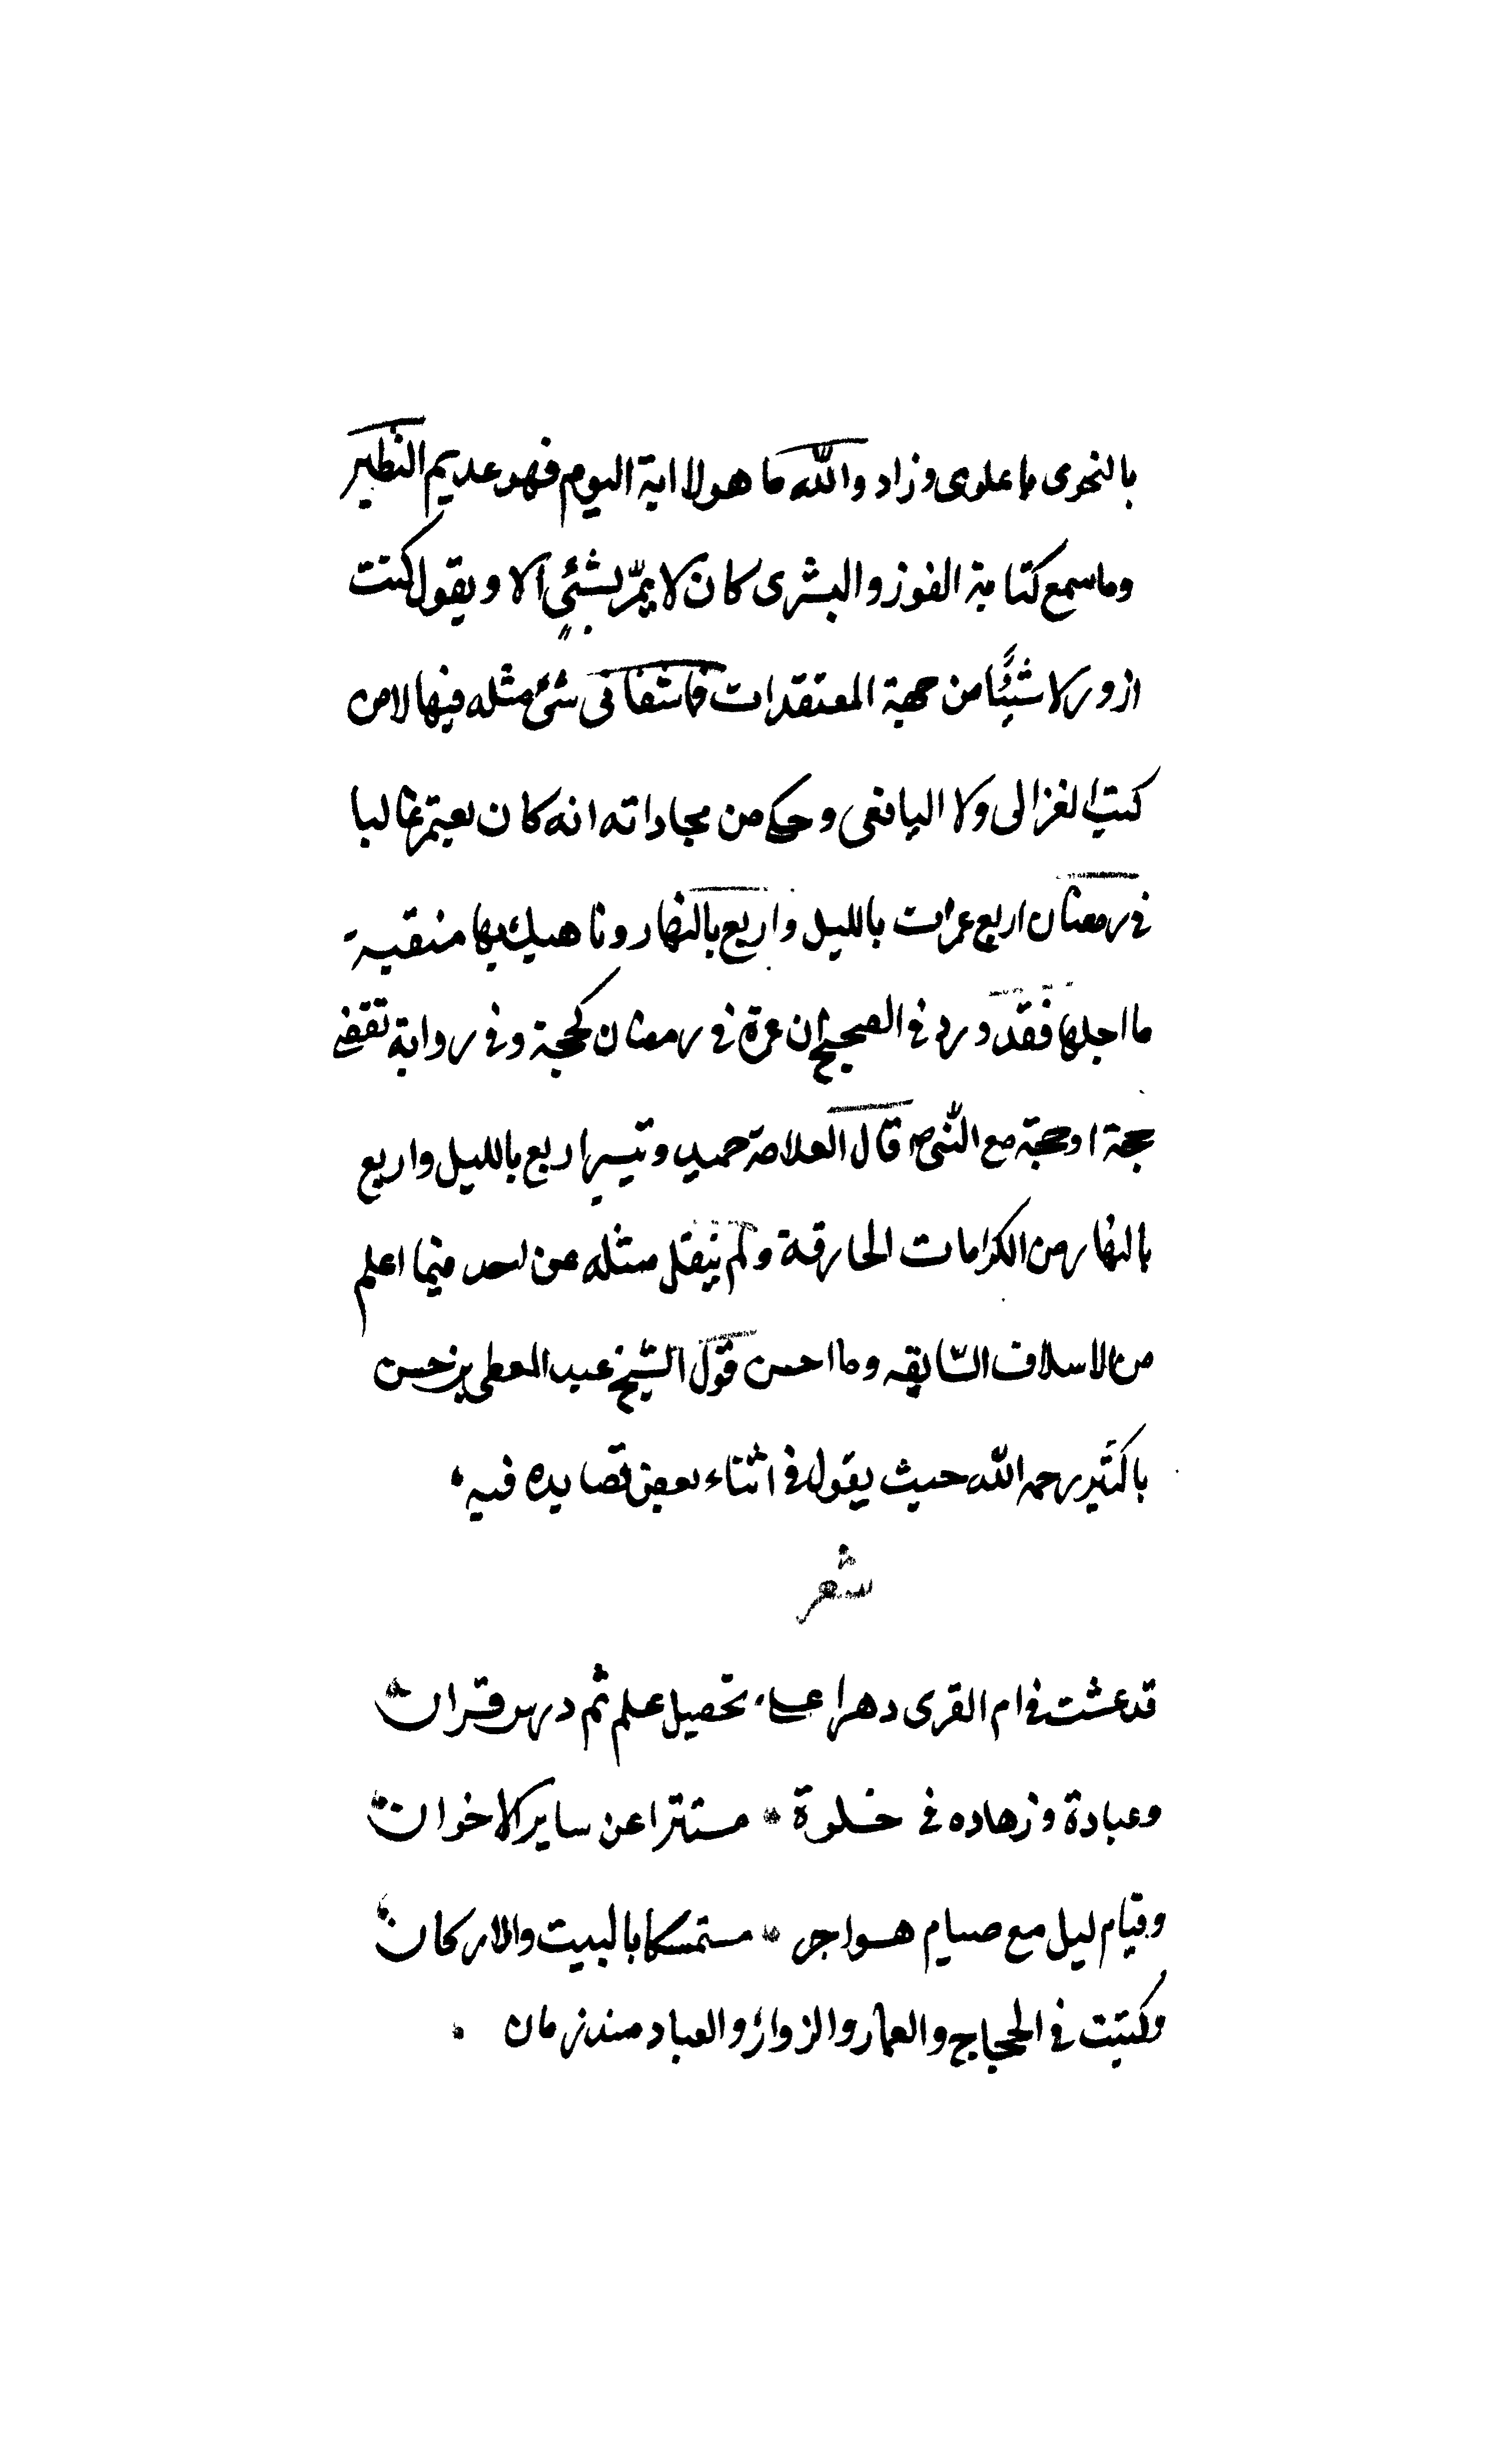 بالنحوى باعلوى وزاد والله ما هو الا اية اليوم فهو عديم النظير
وما سمع كتابة الفوز والبشرى كان لا يمر بشئ الا ويقول كنت
ازور كلا شيئًا من جهة المعتقدات فما شفانى شئ مثله فيها لا من
كتب الغزالى ولا اليافعى وحكى من مجاداته انه كان يعتمر غالبا
فى رمضان اربع عمرات بالليل واربع بالنهار وناهيك بها منقبة
ما اجلها فقد ورد فى الصحيح ان عمرة فى رمضان كحجة وفى رواية تقضى
حجة او حجة مع النبى صم قال العلامة حميد وتيسير اربع بالليل واربع
بالنهار من الكرامات الخارقة ولم ينقل مثله عن احد فيما اعلم
من الاسلاف السّابقه وما احسن قول الشيخ عبد المعطى بن حسن
باكَثير رحمه الله حيث يقول فى اثناء بعض قصايده فيه
شعر
قد عشت فى ام القرى دهرا على تحصيل علم ثم درس قران
وعبادة وزهاده فى خلوة * مستترا عن ساير الاخوان
وقيام ليل مع صيام هواجر * مستمسكا بالبيت والاركان
وكتبت فى الحجاج والعمار والزوار والعباد منذ زمان